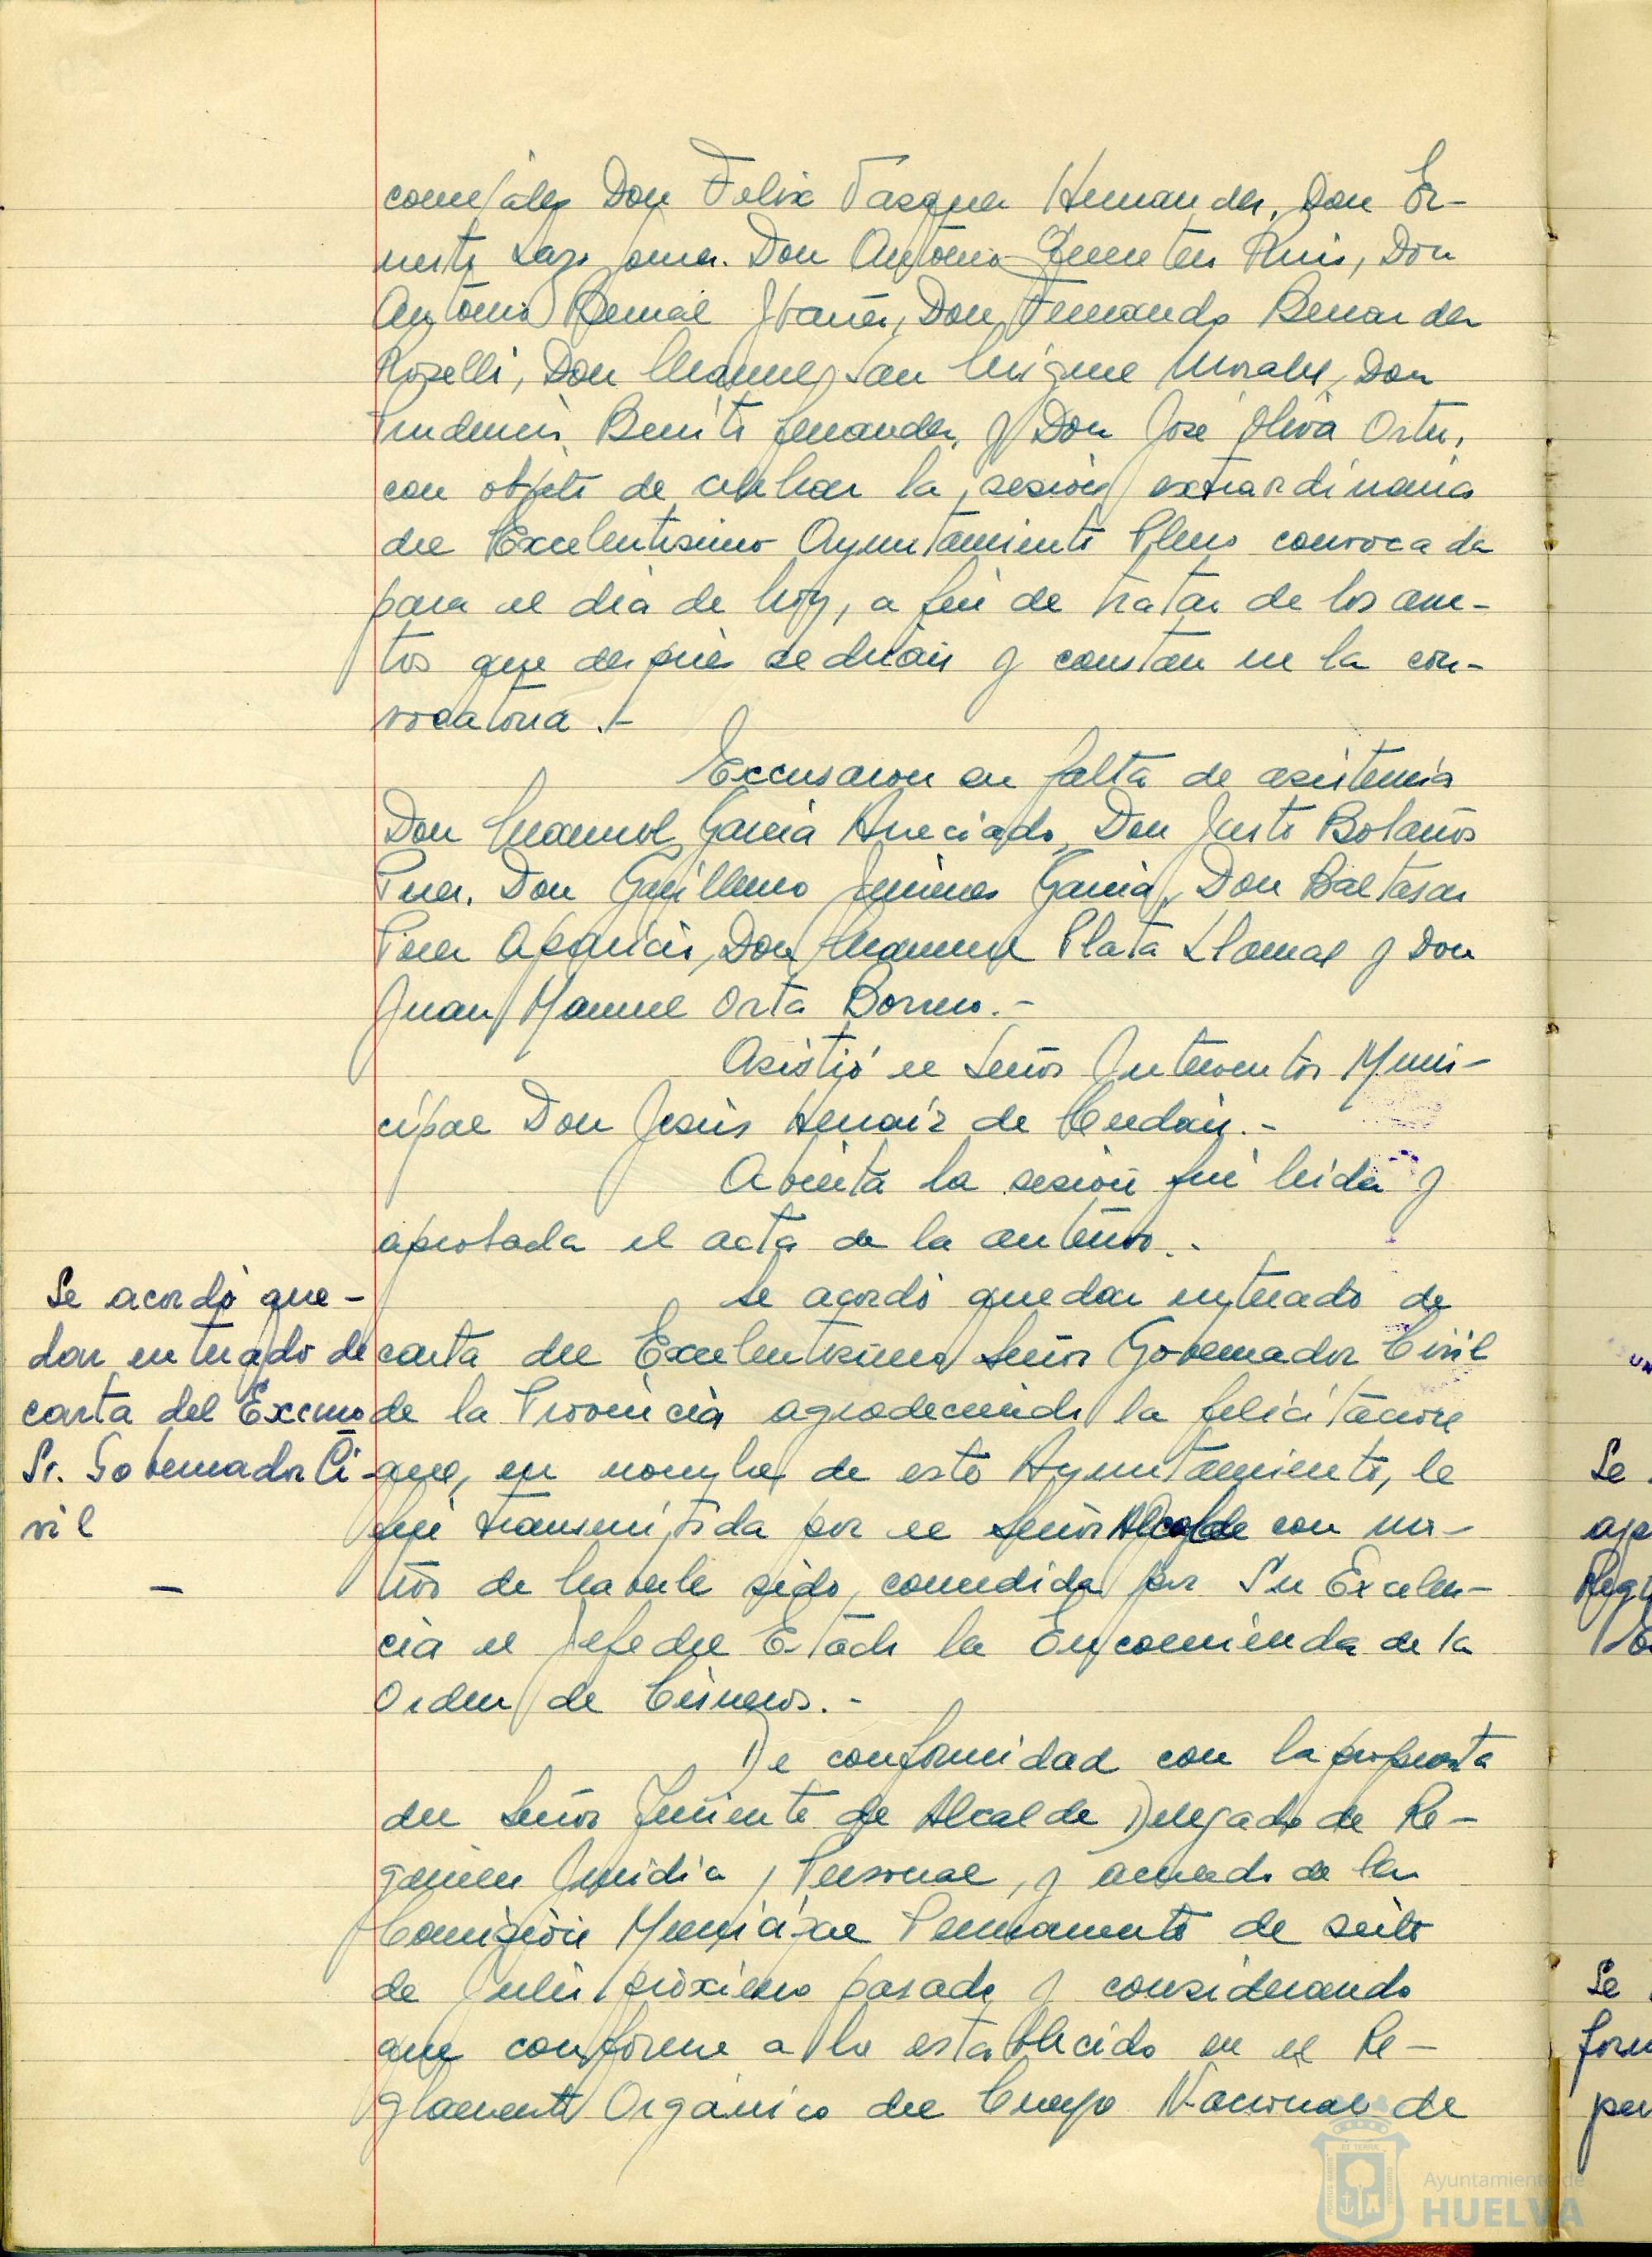 concejales Don Felix Vazquez Hernandez, Don Er-
nesto Lazo Don Antonio Ruiz, Don
Antonio Bernal Ibañez, Don Fernando Bernardez
Roselli, Don Manuel San Miguel Morales, Don
Prudencio Benito Fernandez, y Don José Oliva Ortiz,
con objeto de celebrar la sesión extraordinaria
del Excelentisimo Ayuntamiento Pleno convocada
para el dia de hoy, a fin de tratar de los asun-
tos que después se dirán y constan en la con-
vocatoria.-
Excusaron su falta de asistencia
Don Manuel Garcia Don Justo Bolaños
Don Guillermo Jimenez Garcia, Don Baltasar
Perez Aparicio, Don Manuel Plata Llamas y Don
Juan Manuel Orta Borrero.-
Asistió el Señor Interventor Muni-
cipal Don Jesús Herraiz de
Abierta la sesión fué leida y
aprobada el acta de la anterior.-
Se acordó que-
dar enterado de
carta del Excmo
Sr. Gobernador Ci-
vil
–
Se acordó quedar enterado de
carta del Excelentisimo Señor Gobernador Civil
de la Provincia agradeciendo la felicitación
que, en nombre de este Ayuntamiento, le
fué transmitida por el Señor Alcalde con mo-
tivo de haberle sido concedida por Su Excelen-
cia el Jefe del Estado la Encomienda de la
Orden de Cisneros.-
De conformidad con la propuesta
del Señor Teniente de Alcalde Delegado de Re-
gimen Juridico y Personal, y acuerdo de la
Comisión Municipal Permanente de seis
de Julio próximo pasado y considerando
que conforme a lo establecido en el Re-
glamento Orgánico del Cuerpo Nacional de
Se
Se
Ayuntamiento de
HUELVA